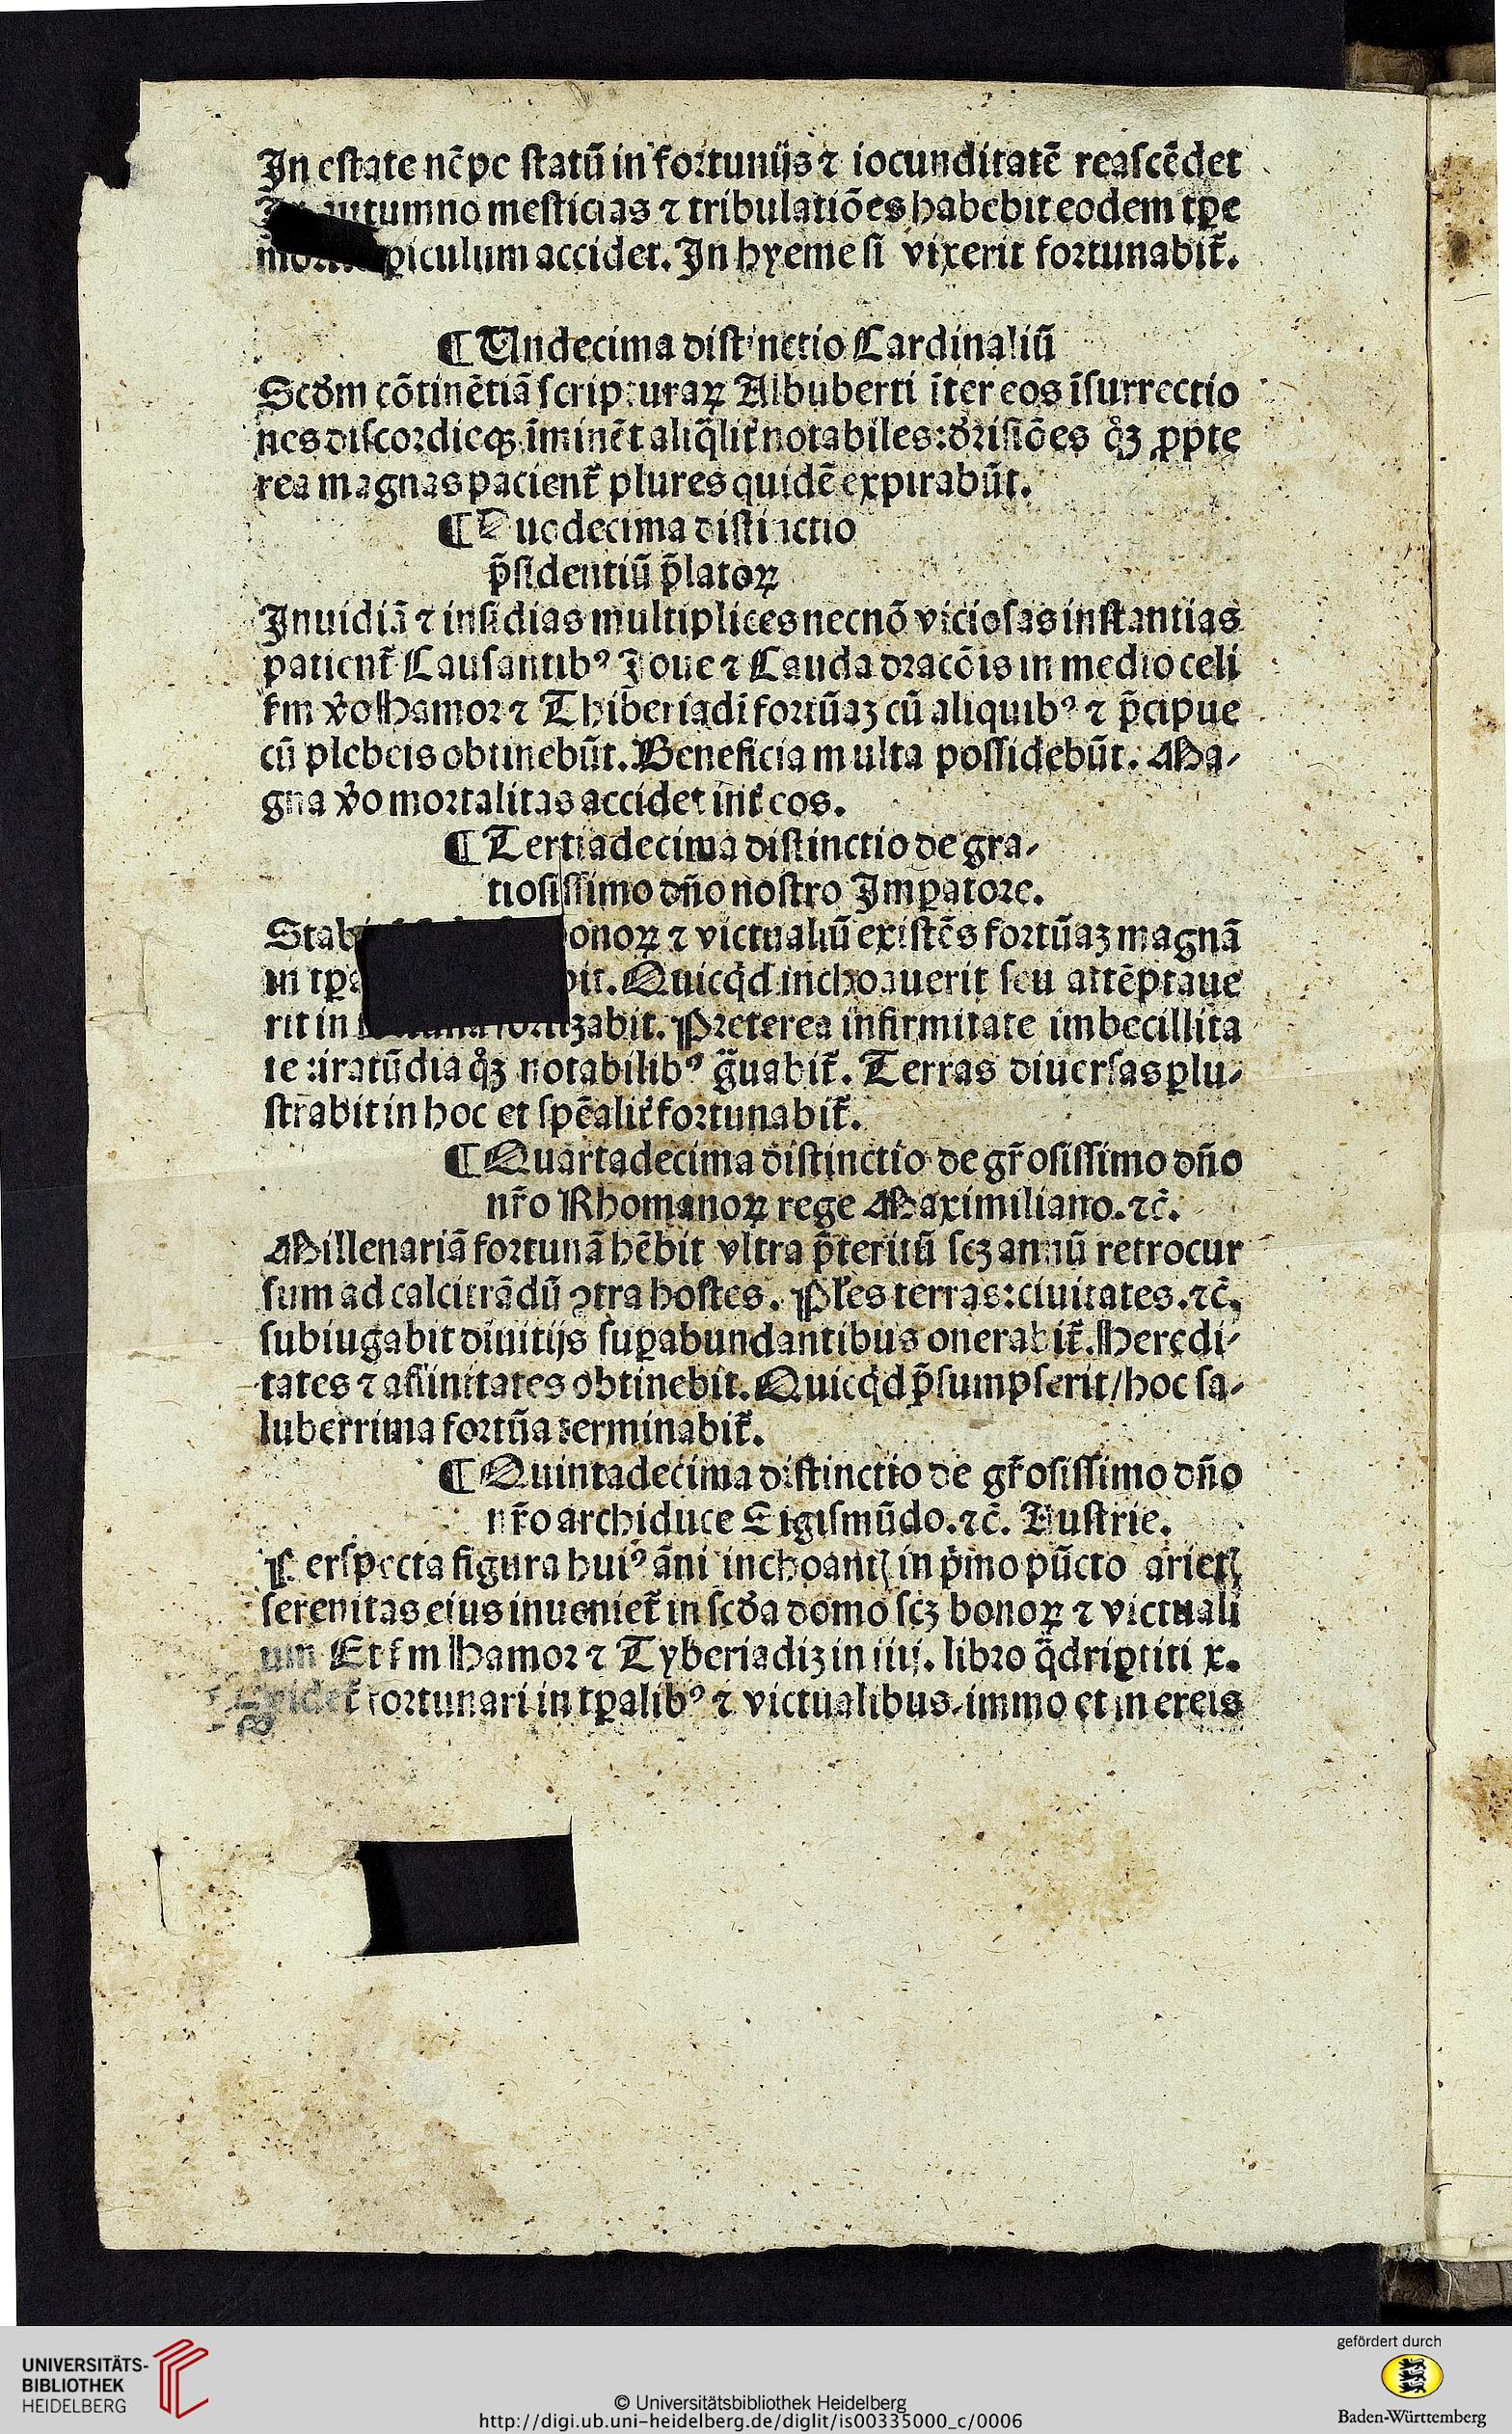 In estate nēpe statū in fortunijs ⁊ iocunditatē reascēdet
autumno mesticias ⁊ tribulatiōes habebit eodem tꝑe
ꝑiculum accidet. In hyeme si vixerit fortunabit̄.
¶ Undecima distinctio Cardinaliū
Scd̄m cōtinētiā scripturaꝝ Albuberti īter eos īsurrectio
nes discordieqꝫ īminēt aliq̄lit̄ notabiles: d̄risiōes qͦꝫ ꝓpte
rea magnas pacient̄ plures quidē expirabūt.
¶ Duodecima distinctio
p̄sidentiū p̄latoꝝ
Inuidiā ⁊ insidias multiplices necnō viciosas instantias
patient̄ Causantibꝰ Ioue ⁊ Cauda dracōis in medio celi
ẜm v̄o Hamor ⁊ Thiberiadi fortūaꝫ cū aliquibꝰ ⁊ p̄cipue
cū plebeis obtinebūt. Beneficia multa possidebūt. Ma⸗
gna v̄o mortalitas accidet int̄ eos.
¶ Tertiadecima distinctio de gra⸗
tiosissimo dn̄o nostro Imꝑatore.
onoꝝ ⁊ victualiū existēs fortūaꝫ magnā
in Quicqͥd inchoauerit seu attēptaue
rit in Preterea infirmitate imbecillita
te: iratūdia qͦꝫ notabilibꝰ gͣuabit̄. Terras diuersas ꝑlu⸗
strabit in hoc et spēalit̄ fortunabit̄.
¶ Quartadecima distinctio de gr̄osissimo dn̄o
nr̄o Rhomanoꝝ rege Maximiliano. ⁊c̄.
Millenariā fortunā hēbit vltra p̄teritū scꝫ annū retrocur
sum ad calcitrādū ꝯtra hostes. Pl̄es terras: ciuitates. ⁊c̄.
subiugabit diuitijs suꝑabundantibus onerabit̄. Heredi⸗
tates ⁊ affinitates obtinebit. Quicqͥd p̄sumpserit/ hoc sa⸗
luberrima fortūa terminabit̄.
¶ Quintadecima distinctio de gr̄osissimo dn̄o
nr̄o archiduce Sigismūdo. ⁊c̄. Austrie.
Perspecta figura huiꝰ āni inchoantꝭ in pͥmo pūcto arietꝭ
serenitas eius inueniet̄ in scd̄a domo scꝫ bonoꝝ ⁊ victuali
um Et ẜm Hamor ⁊ Tyberiadiꝫ in iiij. libro qͣdriꝑtiti x.
videt̄ fortunari in tꝑalibꝰ ⁊ victualibus, immo et in ereis
UNIVERSITÄTS-
BIBLIOTHEK
HEIDELBERG
© Universitätsbibliothek Heidelberg
http://digi.ub.uni-heidelberg.de/diglit/is00335000_c/0006
gefördert durch
Baden-Württemberg